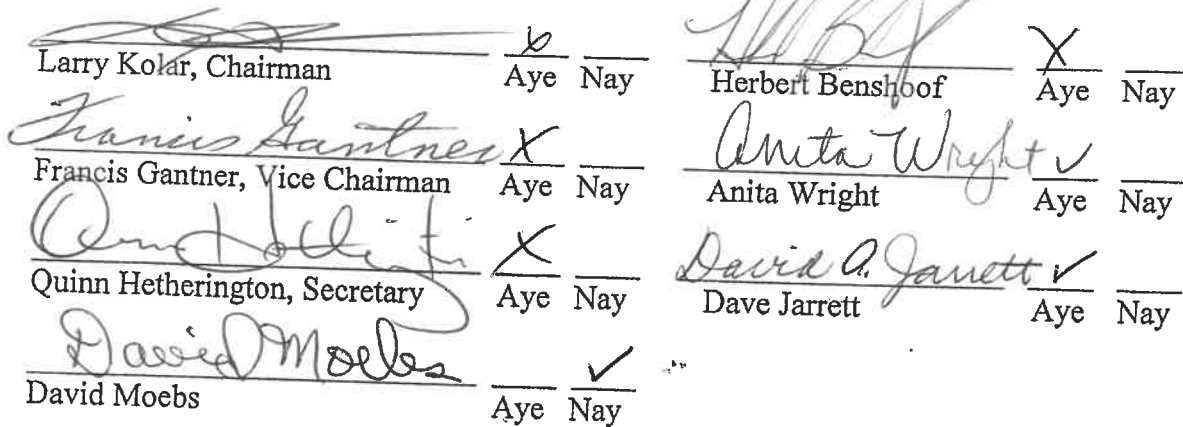 Larry Kolar, Chairman
Aye Nay
Francis Gantner X
Francis Gantner, Vice Chairman
Aye Nay
X
Quinn Hetherington, Secretary
Aye Nay
David Moebs ✓
David Moebs
Aye Nay
X
Herbert Benshoof
Aye Nay
Anita Wright ✓
Anita Wright
Aye Nay
David A. Jarrett ✓
Dave Jarrett
Aye Nay